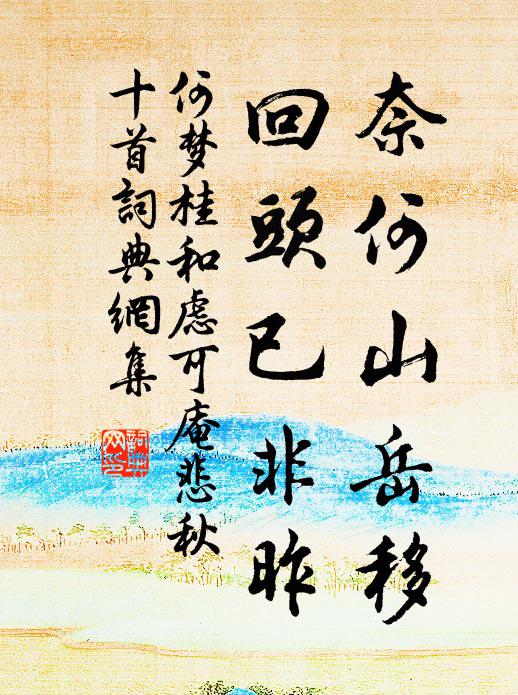 奈何山岳移
回頭已非昨
何梦桂和虑可庵悲秋
十首詞典網集